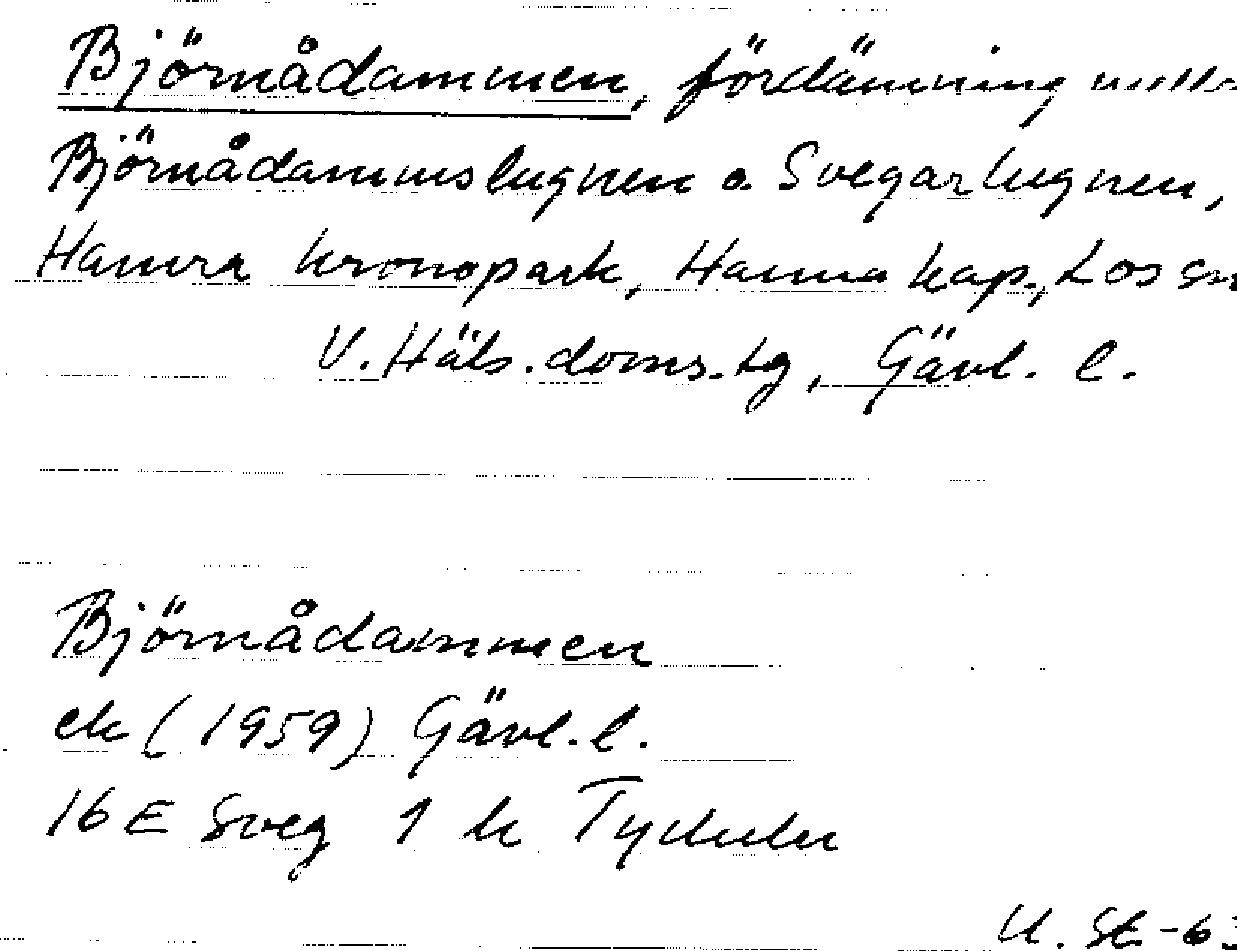 Björnådammen, fördämning mella
Björnådammslugnen o. Svegarlugnen,
Hamra kronopark, Hamra kap., Los sn
V. Häls. doms. tg, Gävl. l.
Björnådammen
ek (1959) Gävl. l.
16 E Sveg 1 h
U. St -63